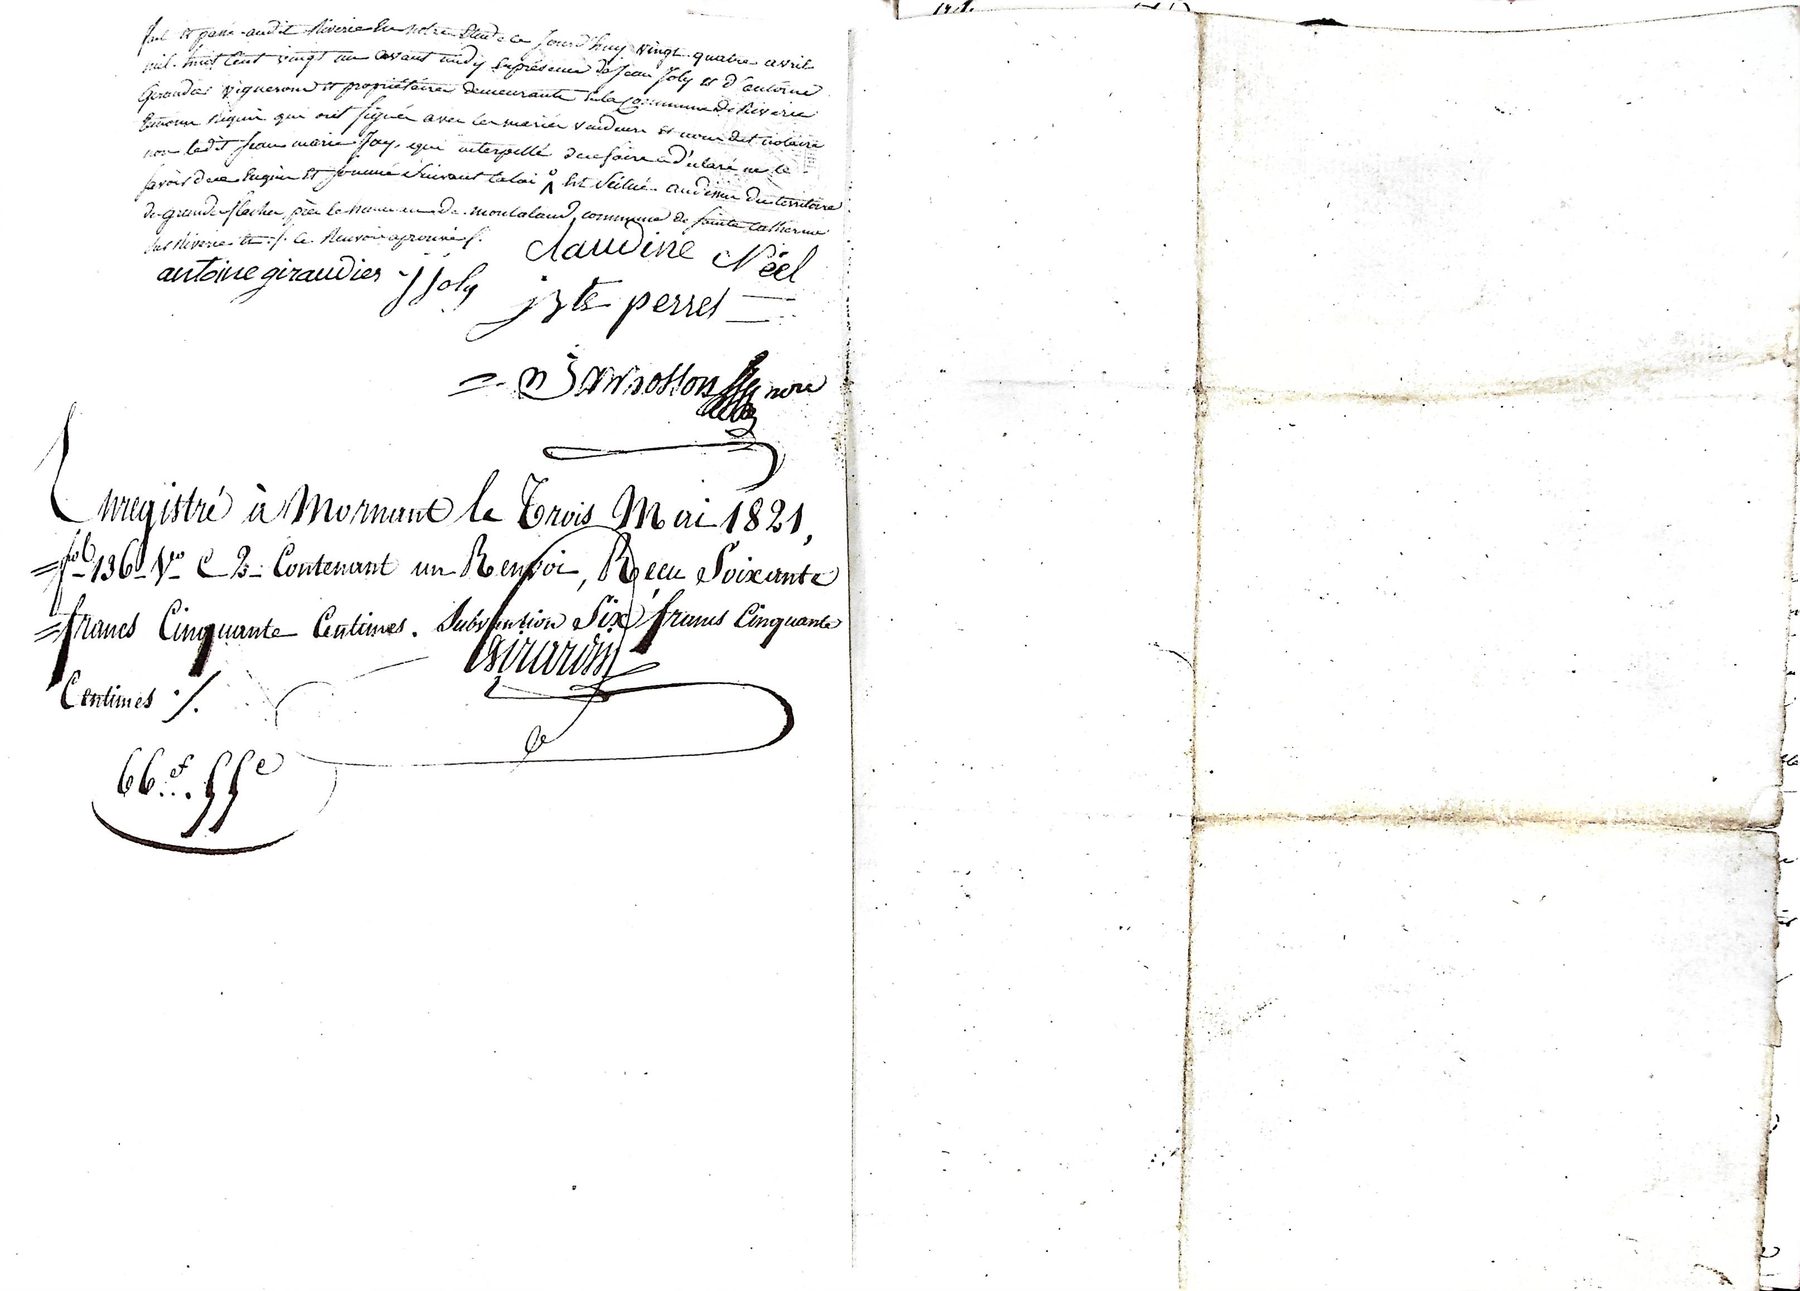 fait et passé audit Riverie En notre Etude ce jourd'huy vingt quatre avril
mil huit Cent vingt un avant midy En présence de Jean Joly et d'antoine
Giraudier vignerons et propriétaires demeurants En la Commune de Riverie
témoins Requis qui ont signés avec les mariés vendeurs et nous dit notaire
non ledit Jean marie Jay, qui interpellé de ce faire a déclaré ne le
savoir de ce Enquis et sommé suivant la loi Est Située au dessus du territoire
de grande flache, près le hameau de montaland, commune de sainte catherine
sur Riverie ./. ce Renvoi aprouvé ./.
antoine giraudier J Joly Claudine Néel
jste perret
nore
Enregistré à Mornant le Trois Mai 1821,
fol 136 Vo C 2 Contenant un Renvoi, Reçu Soixante
francs Cinquante Centimes. Subvention Six francs Cinquante
Girardin
Centimes ./.
66f.. 55c